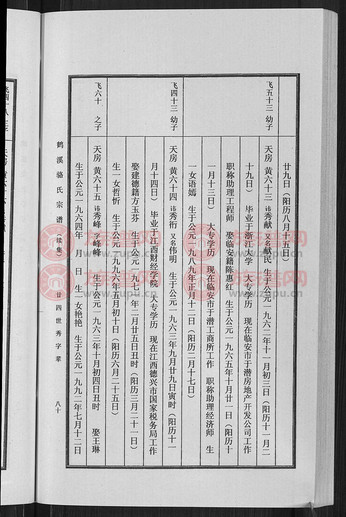 廿九日（阳历八月十五日）
飞五十三 幼子
天房 黄六十三 讳秀献 又名献民 生于公元一九六二年十一月初三日（阳历十一月二
十九日） 毕业于浙江大学 大专学历 现在临安市于潜房地产开发公司工作
职称助理工程师 娶临安籍陈惠红 生于公元一九六五年十月廿一日（阳历十
一月十三日） 大专学历 现在临安市于潜工商所工作 职称助理经济师 生
一女语嫣 生于公元一九八九年正月十二日（阳历二月十七日）
飞四十三 幼子
天房 黄六十四 讳秀衍 又名伟明 生于公元一九六三年九月廿九日寅时（阳历十一
月十四日） 毕业于江西财经学院 大专学历 现在江西德兴市国家税务局工作
娶建德籍方玉芬 生于公元一九七一年二月廿五日丑时（阳历三月二十一日）
生一女哲忻 生于公元一九九六年五月初十日（阳历六月二十五日）
飞六十 之子
天房 黄六十五 讳秀峰 字峰峰 生于公元一九六三年十月初四日丑时 娶王琳
生于公元一九六四年 月 日 生一女艳艳 生于公元一九九二年七月十二日
鹤溪骆氏宗谱（续集） 廿四世秀字辈 八十